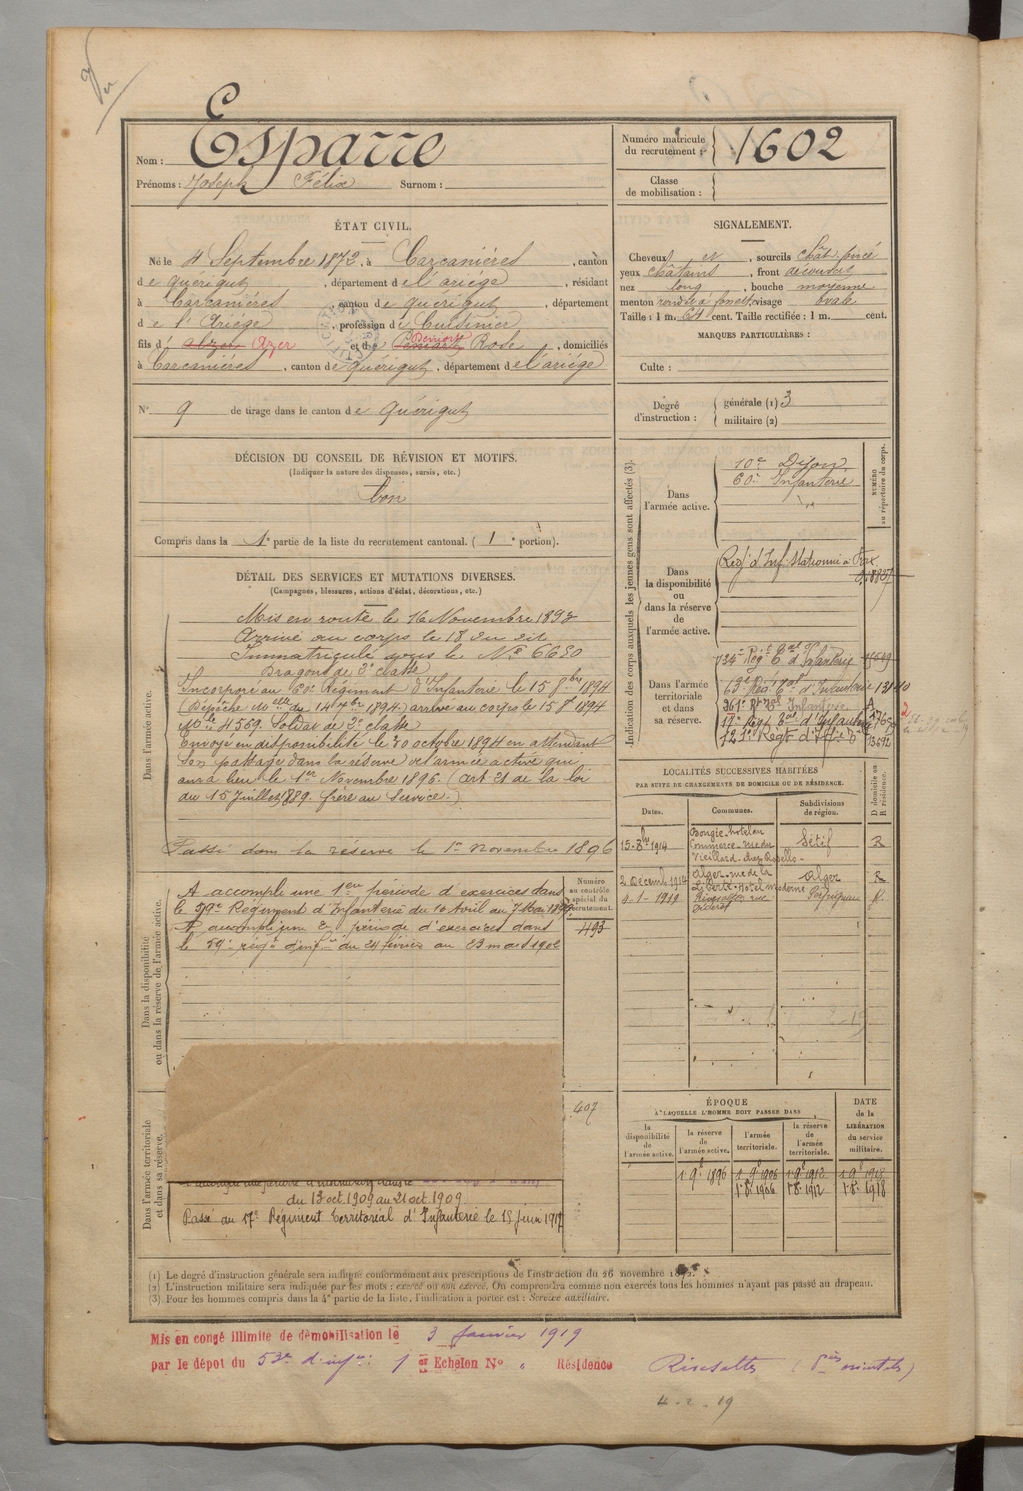 Nom : Esparre
Prénoms : Joseph Félix Surnom :
Numéro matricule du recrutement : 1602
Classe de mobilisation :
ÉTAT CIVIL.
Né le 4 Septembre 1872, à Carcanières, canton
de Quérigut, département de l'ariége, résidant
à Carcanières, canton de Quérigut, département
de l'Ariége, profession de Cuisinier
fils d' Azer et de Rose, domiciliés
à Carcanières, canton de Quérigut, département de l'ariége
N° 9 de tirage dans le canton de Quérigut
SIGNALEMENT.
Cheveux et, sourcils Chât. foncé
yeux châtains, front découvert
nez long, bouche moyenne
menton rond, visage ovale
Taille : 1 m. 61 cent. Taille rectifiée : 1 m. cent.
MARQUES PARTICULIÈRES :
Culte :
Degré d'instruction : générale (1) 3
militaire (2)
DÉCISION DU CONSEIL DE RÉVISION ET MOTIFS.
(Indiquer la nature des dispenses, sursis, etc.)
bon
Compris dans la 1e partie de la liste du recrutement cantonal. (1e portion).
DÉTAIL DES SERVICES ET MUTATIONS DIVERSES.
(Campagnes, blessures, actions d'éclat, décorations, etc.)
Dans l'armée active.
Mis en route le 16 Novembre 1893
Arrivé au corps le 18 du dit
Immatriculé sous le N° 6650
Dragons de 2e classe
Incorporé au 60e Régiment d'Infanterie le 15 8bre 1894
(Dépêche Mlle du 14 7bre 1894) arrivé au corps le 15 8e 1894
Mle 4569. Soldat de 2e classe
Envoyé en disponibilité le 30 octobre 1894 en attendant
son passage dans la réserve de l'armée active qui
aura lieu le 1er Novembre 1896. (art 21 de la loi
du 15 Juillet 1889. frère au Service.)
Passé dans la réserve le 1er Novembre 1896
Dans la disponibilité ou dans la réserve de l'armée active.
A accompli une 1ere période d'exercices dans
le 59e Régiment d'Infanterie du 10 Avril au 7 Mai
A accompli une 2e période d'exercices dans
le 59e rég.t d'inf.ie du 24 février au 23 mars 1902
Numéro au contrôle spécial du recrutement.
493
407
Dans l'armée territoriale et dans sa réserve.
du 13 oct. 1909 au 21 oct. 1909
Passé au 17e Régiment territorial d'Infanterie le 15 Juin 1917
Indication des corps auxquels les jeunes gens sont affectés (3).
NUMÉRO au répertoire du corps.
Dans l'armée active.
10e Dijon
60e Infanterie
Dans la disponibilité ou dans la réserve de l'armée active.
Reg.t d'Inf. Stationné à Foix
Dans l'armée territoriale et dans sa réserve.
134e Reg.t T.al d'Infanterie
63e Reg.t T.al d'Infanterie
361e R.t T.al Infanterie
17e Reg.t T.al d'Infanterie
LOCALITÉS SUCCESSIVES HABITÉES
PAR SUITE DE CHANGEMENTS DE DOMICILE OU DE RÉSIDENCE.
Dates. Communes. Subdivisions de région. D domicile ou R résidence.
15-8bre 1914 Bougie-hotel du Commerce-rue du Vieillard-chez Sétif R
2 Décemb 1914 Alger-rue de la Liberté-Hotel moderne Alger R
4-1-1919 Rivesaltes rue Perpignan R
ÉPOQUE À LAQUELLE L'HOMME DOIT PASSER DANS
la disponibilité de l'armée active. la réserve de l'armée active. l'armée territoriale. la réserve de l'armée territoriale. DATE de la LIBÉRATION du service militaire.
1 9e 1896 1 9e 1906 1 9e 1912 1 9e 1918
1er 8e 1906 1er 8e 1912 1er 8e 1918
(1) Le degré d'instruction générale sera indiqué conformément aux prescriptions de l'instruction du 26 novembre
(2) L'instruction militaire sera indiquée par les mots : exercé ou non exercé. On comprendra comme non exercés tous les hommes n'ayant pas passé au drapeau.
(3) Pour les hommes compris dans la 4e partie de la liste, l'indication à porter est : Service auxiliaire.
Mis en congé illimité de démobilisation le 3 Janvier 1919
par le dépot du 53e d'inf.ie 1er Echelon N° " Résidence Rivesaltes (Pées orientales)
4-2-19